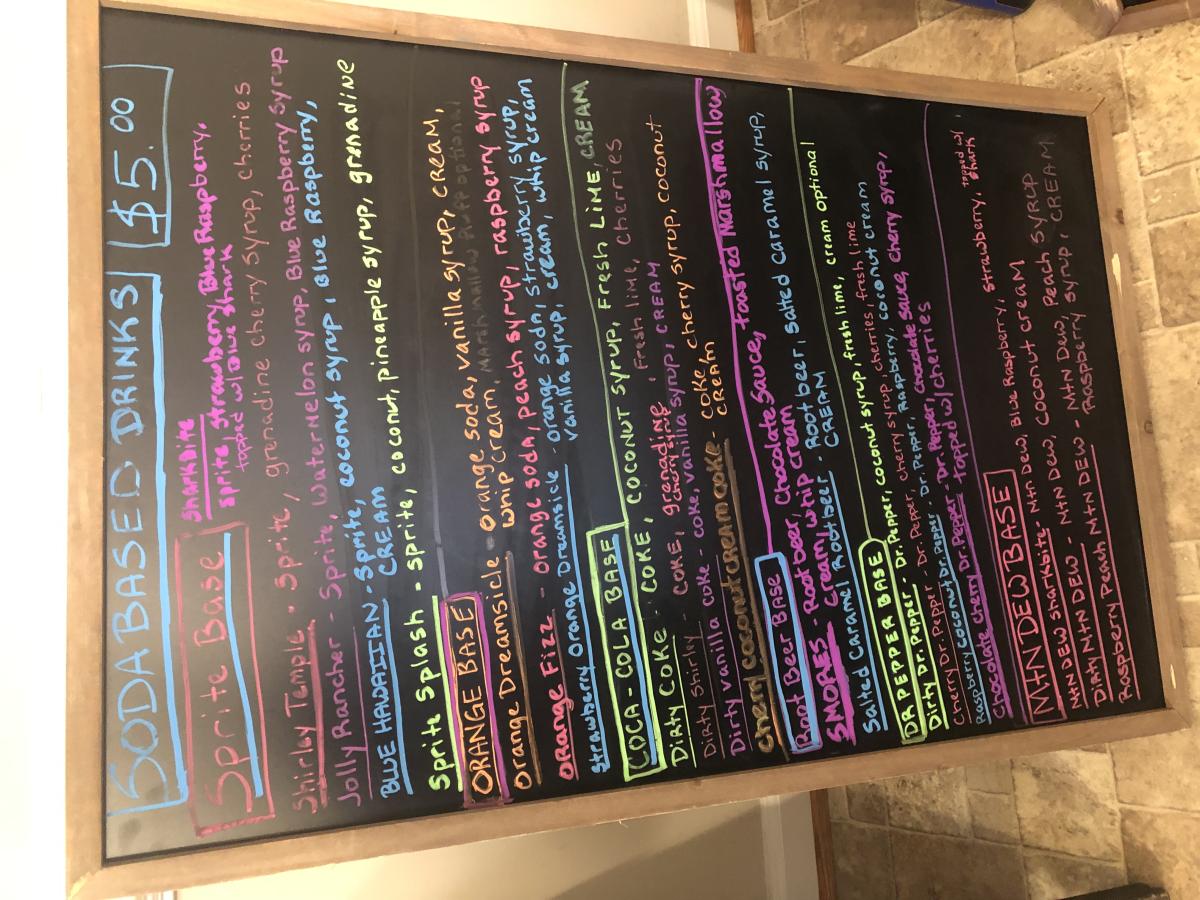 SODA BASED DRINKS $5.00
Sprite Base
Sharkbite
Sprite, Strawberry, Blue Raspberry,
topped w/ blue shark
Shirley Temple - Sprite, grenadine cherry syrup, cherries
Jolly Rancher - Sprite, Watermelon syrup, Blue Raspberry syrup
BLUE HAWAIIAN - Sprite, coconut syrup, Blue Raspberry,
CREAM
Sprite Splash - sprite, coconut, pineapple syrup, grenadine
ORANGE BASE
Orange Dreamsicle - Orange Soda, vanilla syrup, CREAM,
whip cream, Marshmallow Fluff optional
Orange Fizz - orange soda, peach syrup, raspberry syrup
Strawberry Orange Dreamsicle - orange soda, strawberry syrup,
vanilla syrup, cream, whip cream
COCA-COLA BASE
Dirty Coke - COKE, coconut syrup, Fresh Lime, CREAM
Dirty Shirley - COKE, grenadine, Fresh lime, cherries
cherry syrup
Dirty vanilla coke - coke, vanilla syrup, CREAM
Cherry Coconut cream coke - coke, cherry syrup, coconut
CREAM
Root Beer BASE
SMORES - Root beer, Chocolate Sauce, toasted Marshmallow
Cream, whip cream
Salted Caramel Rootbeer - Root beer, Salted caramel syrup,
CREAM
DR PEPPER BASE
Dirty Dr. Pepper - Dr. Pepper, coconut syrup, fresh lime, cream optional
Cherry Dr. Pepper - Dr. Pepper, cherry syrup, cherries, fresh lime
Raspberry coconut Dr. Pepper - Dr. Pepper, Raspberry, coconut cream
Chocolate cherry Dr. Pepper - Dr. Pepper, chocolate sauce, cherry syrup,
topped w/ cherries
MTN DEW BASE
MTN DEW Sharkbite - Mtn Dew, Blue Raspberry, strawberry, topped w/ shark
MTN DEW - Mtn Dew, coconut cream
Dirty MTN DEW - Mtn Dew, Peach Syrup
Raspberry Peach MTN DEW - Mtn Dew, Peach,
Raspberry syrup, CREAM